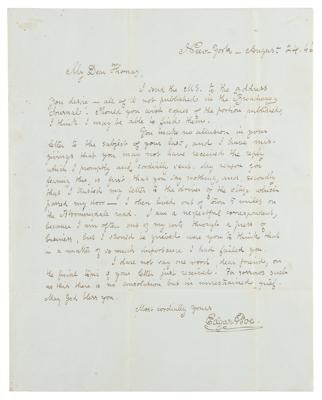 New-York – August 24. 46
My Dear Thomas,
I send the MS. to the address
you desire – all of it not published in the Broadway
Journal. Should you want copies of the portion published,
I think I may be able to find them.
You make no allusion in your
letter to the subject of your last, and I have mis-
givings that you may not have received the reply
which I promptly and cordially sent. My reason for
fearing this is first that you say nothing, and secondly
that I entrusted my letter to the driver of the stage which
passed my door – I then lived out of town 5 miles on
the Bloomingdale road. I am a neglectful correspondent,
because I am often out of my wits through a press of
business, but I should be grieved were you to think that
in a matter of so much importance I had failed you.
I dare not say one word, dear friend, on
the painful topic of your letter just received. For sorrows such
as this there is no consolation but in unrestrained grief.
May God bless you.
Most cordially Yours
Edgar A Poe.